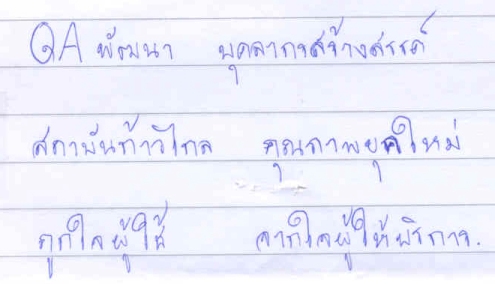 QA พัฒนา บุคลากรสร้างสรรค์
สถาบันก้าวไกล คุณภาพยุคใหม่
ถูกใจผู้ใช้ จากใจผู้ให้บริการ.